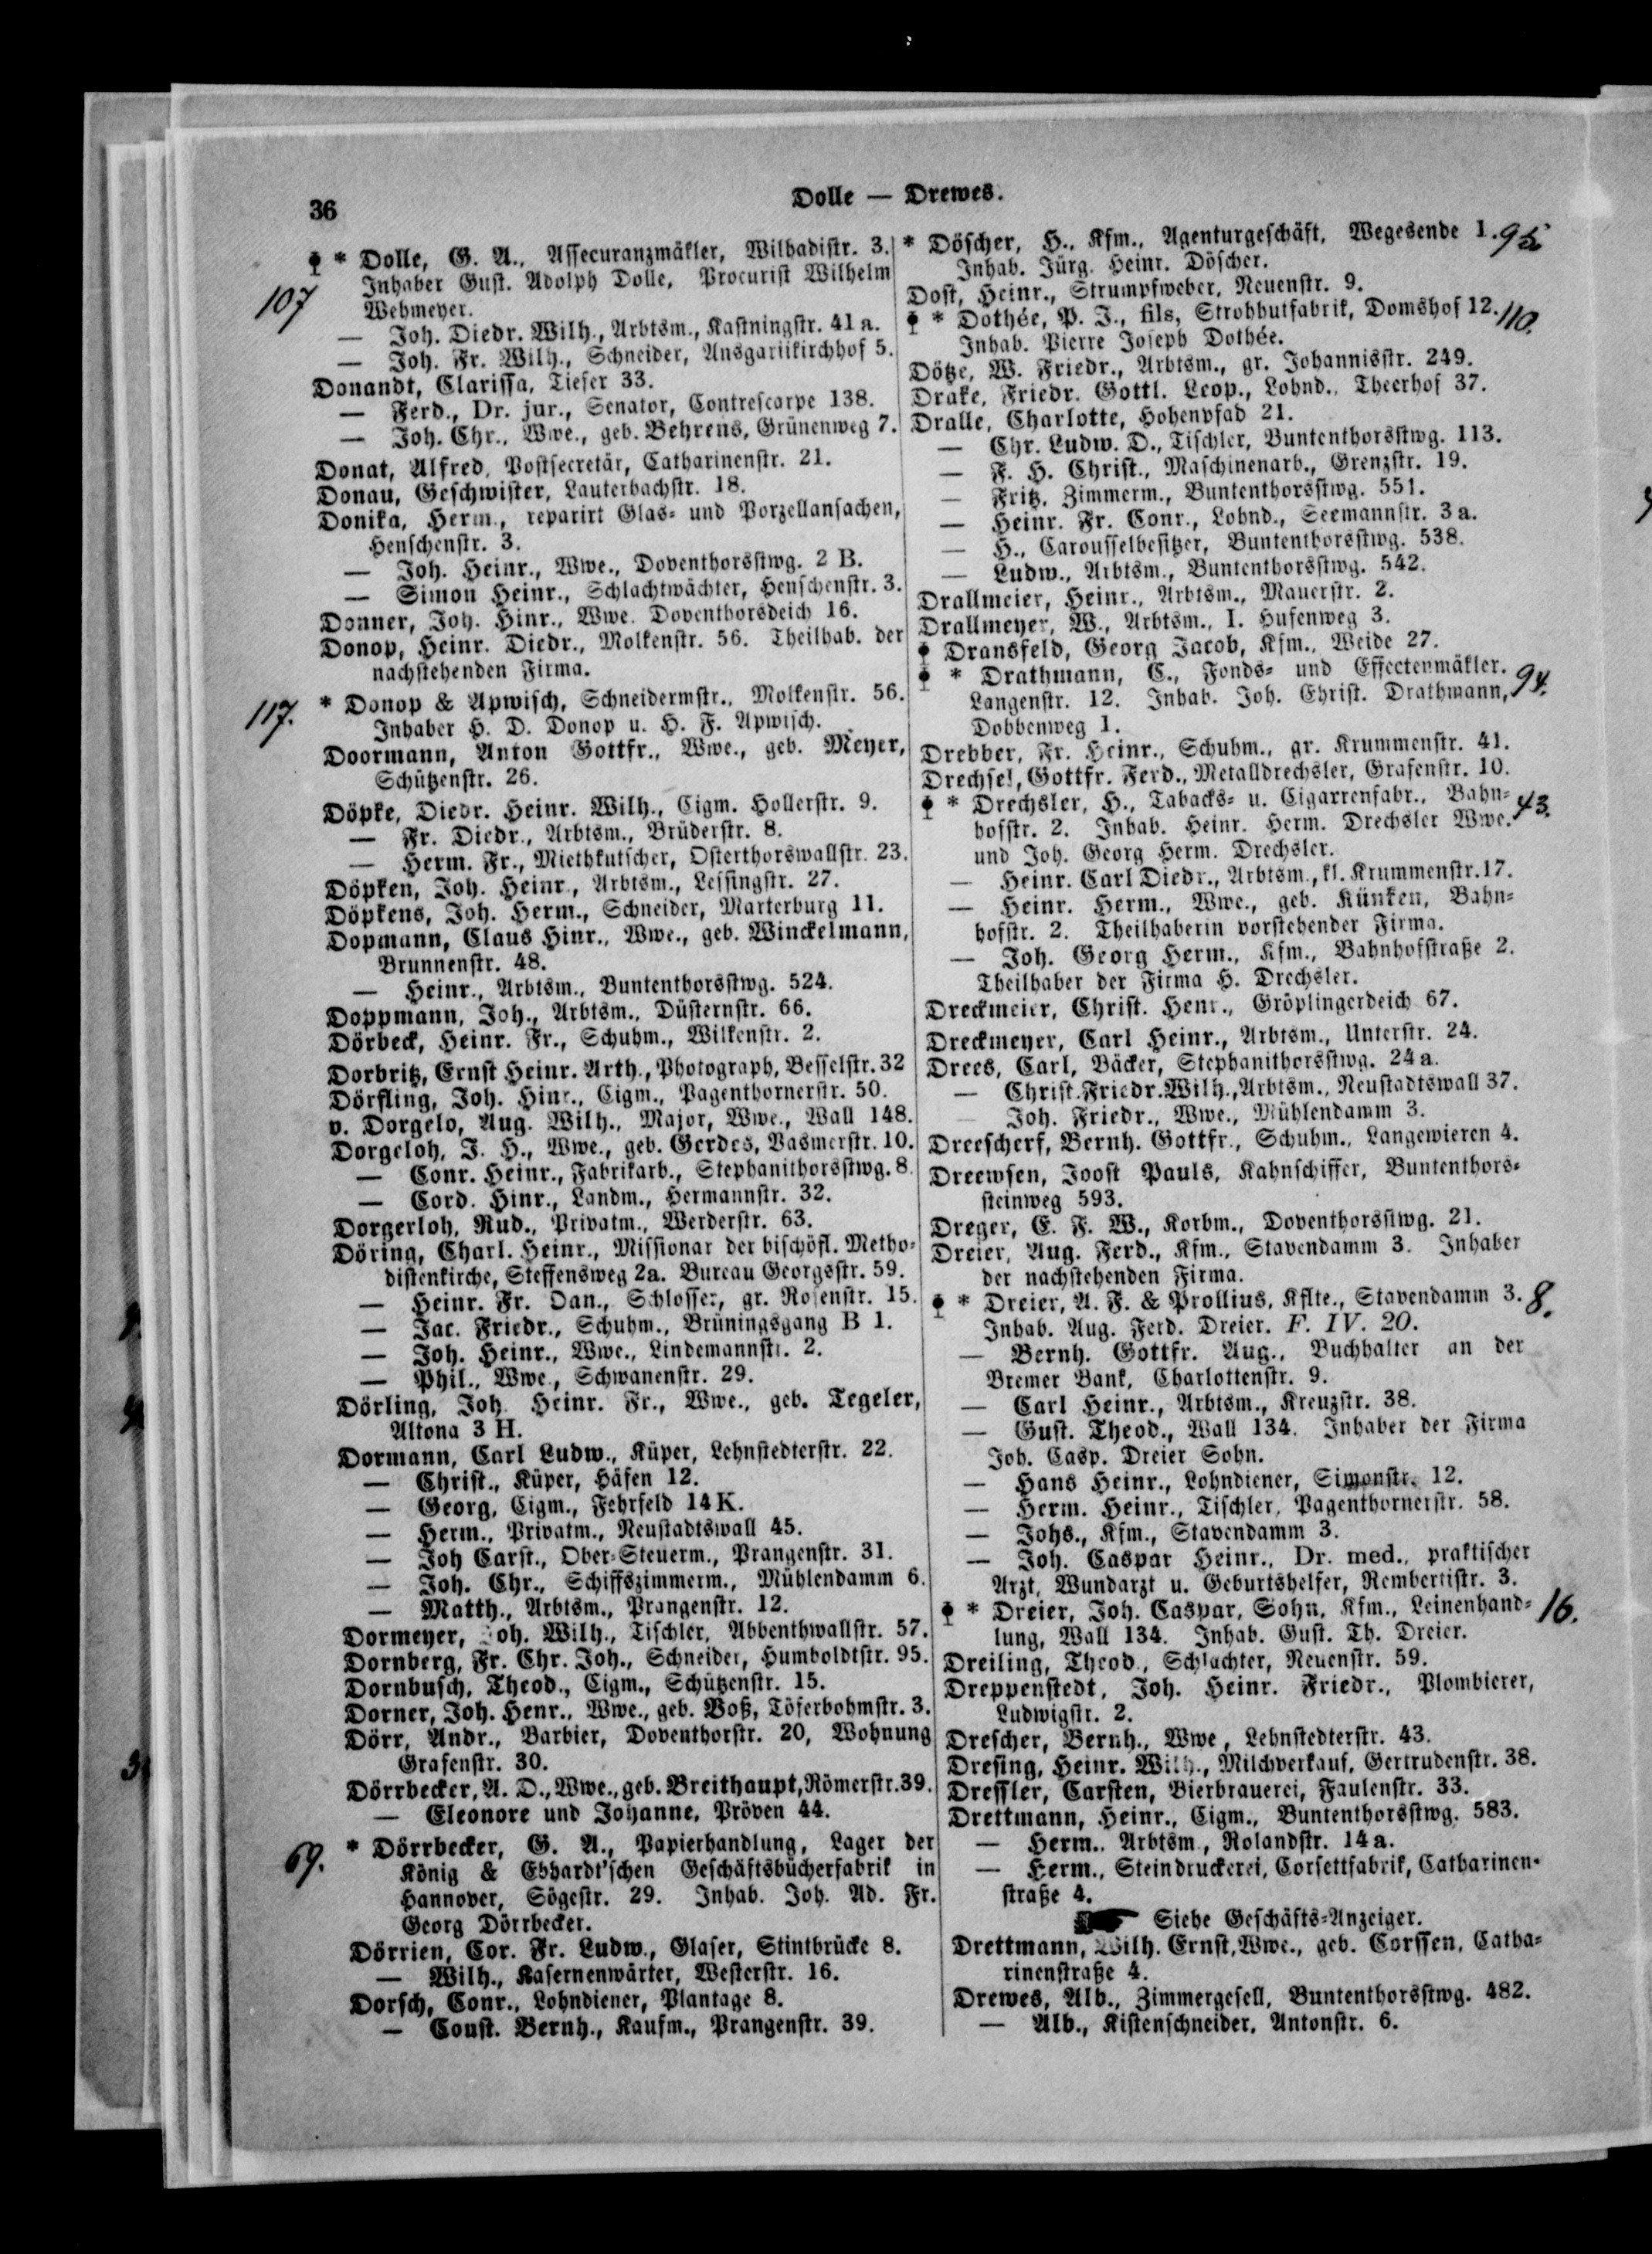 36
Dolle — Drewes.
* Dolle, G. A., Assecuranzmäkler, Wilhadistr. 3.
Inhaber Gust. Adolph Dolle, Procurist Wilhelm
107
Wehmeyer.
— Joh. Diedr. Wilh., Arbtsm., Kastningstr. 41 a.
— Joh. Fr. Wilh., Schneider, Ansgariikirchhof 5.
Donandt, Clarissa, Tiefer 33.
— Ferd., Dr. jur., Senator, Contrescarpe 138.
— Joh. Chr., Wwe., geb. Behrens, Grünenweg 7.
Donat, Alfred, Postsecretär, Catharinenstr. 21.
Donau, Geschwister, Lauterbachstr. 18.
Donika, Herm., reparirt Glas- und Porzellansachen,
Henschenstr. 3.
— Joh. Heinr., Wwe., Doventhorsstwg. 2 B.
— Simon Heinr., Schlachtwächter, Henschenstr. 3.
Donner, Joh. Hinr., Wwe. Doventhorsdeich 16.
Donop, Heinr. Diedr., Molkenstr. 56. Theilhab. der
nachstehenden Firma.
117.
* Donop & Apwisch, Schneidermstr., Molkenstr. 56.
Inhaber H. D. Donop u. H. F. Apwisch.
Doormann, Anton Gottfr., Wwe., geb. Meyer,
Schützenstr. 26.
Döpke, Diedr. Heinr. Wilh., Cigm. Hollerstr. 9.
— Fr. Diedr., Arbtsm., Brüderstr. 8.
— Herm. Fr., Miethkutscher, Osterthorswallstr. 23.
Döpken, Joh. Heinr., Arbtsm., Lessingstr. 27.
Döpkens, Joh. Herm., Schneider, Marterburg 11.
Dopmann, Claus Hinr., Wwe., geb. Winckelmann,
Brunnenstr. 48.
— Heinr., Arbtsm., Buntenthorsstwg. 524.
Doppmann, Joh., Arbtsm., Düsternstr. 66.
Dörbeck, Heinr. Fr., Schuhm., Wilkenstr. 2.
Dorbritz, Ernst Heinr. Arth., Photograph, Besselstr. 32
Dörfling, Joh. Hinr., Cigm., Pagenthornerstr. 50.
v. Dorgelo, Aug. Wilh., Major, Wwe., Wall 148.
Dorgeloh, J. H., Wwe., geb. Gerdes, Vasmerstr. 10.
— Conr. Heinr., Fabrikarb., Stephanithorsstwg. 8.
— Cord. Hinr., Landm., Hermannstr. 32.
Dorgerloh, Rud., Privatm., Werderstr. 63.
Döring, Charl. Heinr., Missionar der bischöfl. Metho-
distenkirche, Steffensweg 2a. Bureau Georgsstr. 59.
— Heinr. Fr. Dan., Schlosser, gr. Rosenstr. 15.
— Jac. Friedr., Schuhm., Brüningsgang B 1.
— Joh. Heinr., Wwe., Lindemannstr. 2.
— Phil., Wwe., Schwanenstr. 29.
Dörling, Joh. Heinr. Fr., Wwe., geb. Tegeler,
Altona 3 H.
Dormann, Carl Ludw., Küper, Lehnstedterstr. 22.
— Christ., Küper, Häfen 12.
— Georg, Cigm., Fehrfeld 14 K.
— Herm., Privatm., Neustadtswall 45.
— Joh Carst., Ober-Steuerm., Prangenstr. 31.
— Joh. Chr., Schiffszimmerm., Mühlendamm 6.
— Matth., Arbtsm., Prangenstr. 12.
Dormeyer, Joh. Wilh., Tischler, Abbenthwallstr. 57.
Dornberg, Fr. Chr. Joh., Schneider, Humboldtstr. 95.
Dornbusch, Theod., Cigm., Schützenstr. 15.
Dorner, Joh. Henr., Wwe., geb. Voß, Töferbohmstr. 3.
Dörr, Andr., Barbier, Doventhorstr. 20, Wohnung
Grafenstr. 30.
Dörrbecker, A. D., Wwe., geb. Breithaupt, Römerstr. 39.
— Eleonore und Johanne, Pröven 44.
69.
* Dörrbecker, G. A., Papierhandlung, Lager der
König & Ebhardt'schen Geschäftsbücherfabrik in
Hannover, Sögestr. 29. Inhab. Joh. Ad. Fr.
Georg Dörrbecker.
Dörrien, Cor. Fr. Ludw., Glaser, Stintbrücke 8.
— Wilh., Kasernenwärter, Westerstr. 16.
Dorsch, Conr., Lohndiener, Plantage 8.
— Coust. Bernh., Kaufm., Prangenstr. 39.
* Döscher, H., Kfm., Agenturgeschäft, Wegesende 1.
Inhab. Jürg. Heinr. Döscher.
Dost, Heinr., Strumpfweber, Neuenstr. 9.
* Dothée, P. J., fils, Strohhutfabrik, Domshof 12. 110.
Inhab. Pierre Joseph Dothée.
Dötze, W. Friedr., Arbtsm., gr. Johannisstr. 249.
Drake, Friedr. Gottl. Leop., Lohnd., Theerhof 37.
Dralle, Charlotte, Hohenpfad 21.
— Chr. Ludw. D., Tischler, Buntenthorsstwg. 113.
— F. H. Christ., Maschinenarb., Grenzstr. 19.
— Fritz, Zimmerm., Buntenthorsstwg. 551.
— Heinr. Fr. Conr., Lohnd., Seemannstr. 3 a.
— H., Carousselbesitzer, Buntenthorsstwg. 538.
— Ludw., Arbtsm., Buntenthorsstwg. 542.
Drallmeier, Heinr., Arbtsm., Mauerstr. 2.
Drallmeyer, W., Arbtsm., I. Hufenweg 3.
Dransfeld, Georg Jacob, Kfm., Weide 27.
* Drathmann, C., Fonds- und Effectenmäkler.
Langenstr. 12. Inhab. Joh. Christ. Drathmann, 94.
Dobbenweg 1.
Drebber, Fr. Heinr., Schuhm., gr. Krummenstr. 41.
Drechsel, Gottfr. Ferd., Metalldrechsler, Grafenstr. 10.
* Drechsler, H., Tabacks- u. Cigarrenfabr., Bahn- 43.
hofstr. 2. Inhab. Heinr. Herm. Drechsler Wwe.
und Joh. Georg Herm. Drechsler.
— Heinr. Carl Diedr., Arbtsm., kl. Krummenstr. 17.
— Heinr. Herm., Wwe., geb. Künken, Bahn-
hofstr. 2. Theilhaberin vorstehender Firma.
— Joh. Georg Herm., Kfm., Bahnhofstraße 2.
Theilhaber der Firma H. Drechsler.
Dreckmeier, Christ. Henr., Gröplingerdeich 67.
Dreckmeyer, Carl Heinr., Arbtsm., Unterstr. 24.
Drees, Carl, Bäcker, Stephanithorsstwg. 24 a.
— Christ. Friedr. Wilh., Arbtsm., Neustadtswall 37.
Joh. Friedr., Wwe., Mühlendamm 3.
Dreescherf, Bernh. Gottfr., Schuhm., Langewieren 4.
Dreewsen, Joost Pauls, Kahnschiffer, Buntenthors-
steinweg 593.
Dreger, E. F. W., Korbm., Doventhorsstwg. 21.
Dreier, Aug. Ferd., Kfm., Stavendamm 3. Inhaber
der nachstehenden Firma.
* Dreier, A. F. & Prollius, Kflte., Stavendamm 3. 8.
Inhab. Aug. Ferd. Dreier. F. IV. 20.
— Bernh. Gottfr. Aug., Buchhalter an der
Bremer Bank, Charlottenstr. 9.
— Carl Heinr., Arbtsm., Kreuzstr. 38.
— Gust. Theod., Wall 134. Inhaber der Firma
Joh. Casp. Dreier Sohn.
— Hans Heinr., Lohndiener, Simonstr. 12.
— Herm. Heinr., Tischler, Pagenthornerstr. 58.
— Johs., Kfm., Stavendamm 3.
— Joh. Caspar Heinr., Dr. med., praktischer
Arzt, Wundarzt u. Geburtshelfer, Rembertistr. 3.
* Dreier, Joh. Caspar, Sohn, Kfm., Leinenhand- 16.
lung, Wall 134. Inhab. Gust. Th. Dreier.
Dreiling, Theod., Schlachter, Neuenstr. 59.
Dreppenstedt, Joh. Heinr. Friedr., Plombierer,
Ludwigstr. 2.
Drescher, Bernh., Wwe, Lehnstedterstr. 43.
Dresing, Heinr. Wilh., Milchverkauf, Gertrudenstr. 38.
Dressler, Carsten, Bierbrauerei, Faulenstr. 33.
Drettmann, Heinr., Cigm., Buntenthorsstwg. 583.
— Herm., Arbtsm., Rolandstr. 14 a.
— Herm., Steindruckerei, Corsettfabrik, Catharinen-
straße 4.
Siehe Geschäfts-Anzeiger.
Drettmann, Wilh. Ernst, Wwe., geb. Corssen, Catha-
rinenstraße 4.
Drewes, Alb., Zimmergesell, Buntenthorsstwg. 482.
— Alb., Kistenschneider, Antonstr. 6.